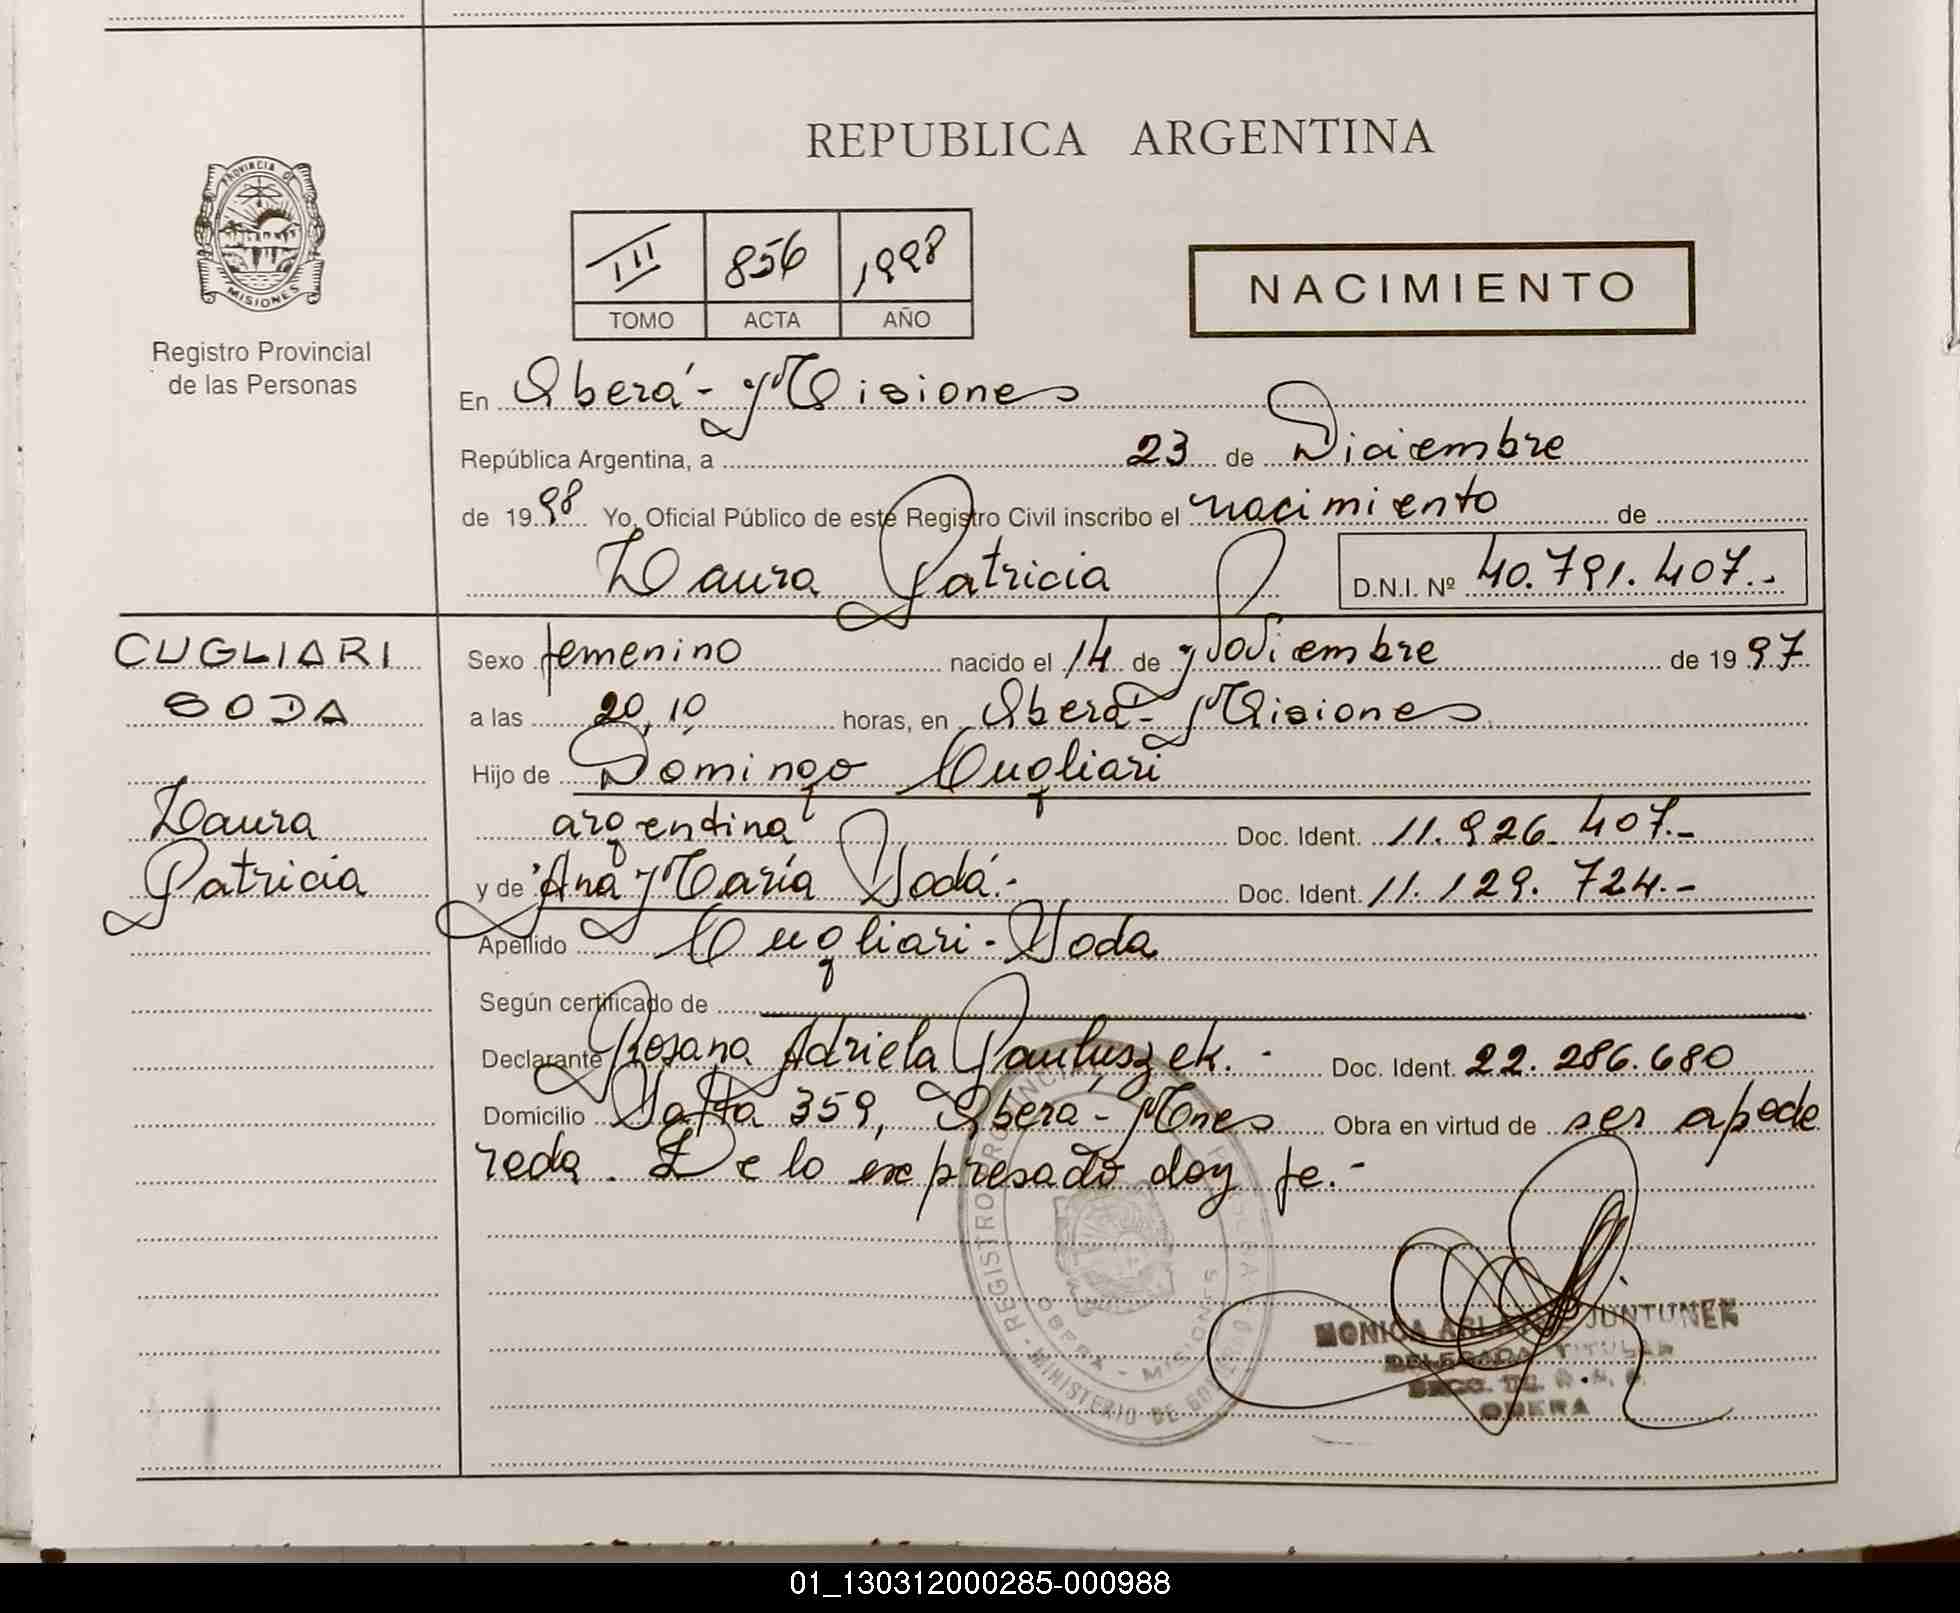 REPUBLICA ARGENTINA
PROVINCIA DE
MISIONES
Registro Provincial
de las Personas
III 856 1998
TOMO ACTA AÑO
NACIMIENTO
En Oberá - Misiones
República Argentina, a 23 de Diciembre
de 1998 Yo, Oficial Público de este Registro Civil inscribo el nacimiento de
Laura Patricia D.N.I. Nº 40.791.407.-
CUGLIARI
SODA
Laura
Patricia
Sexo femenino nacido el 14 de Noviembre de 1997
a las 20,10 horas, en Oberá - Misiones
Hijo de Domingo Cugliari
argentina Doc. Ident. 11.926.407.-
y de Ana María Sodá.- Doc. Ident. 11.129.724.-
Apellido Cugliari - Soda
Según certificado de
Declarante Rosana Adriela Pauluszek.- Doc. Ident. 22.286.680
Domicilio Salta 359, Oberá - Mnes Obra en virtud de ser apode
rada. De lo expresado doy fe.-
REGISTRO PROVINCIAL
MINISTERIO DE GOBIERNO
OBERA - MISIONES
MONICA JUNTUNEN
DELEGADA TITULAR
OBERA
01_130312000285-000988